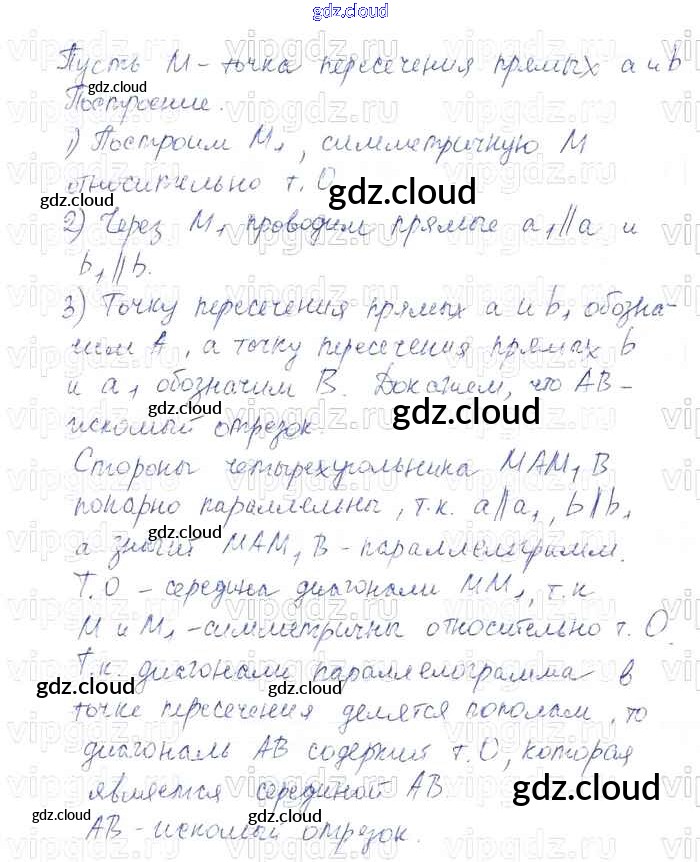 gdz.cloud
Пусть M - точка пересечения прямых a и b
Построение.
1) Построим M₁, симметричную M
относительно т. O
2) Через M₁ проводим прямые a₁∥a и
b₁∥b.
3) Точку пересечения прямых a и b₁ обозна-
чим A, а точку пересечения прямых b
и a₁ обозначим B. Докажем, что AB -
искомый отрезок.
Стороны четырехугольника MAM₁B
попарно параллельны, т.к. a∥a₁, b∥b₁
а значит MAM₁B - параллелограмм.
Т.O - середина диагонали MM₁, т.к
M и M₁ - симметричны относительно т. O.
Т.к. диагонали параллелограмма в
точке пересечения делятся пополам, то
диагональ AB содержит т.O, которая
является серединой AB
AB - искомый отрезок.